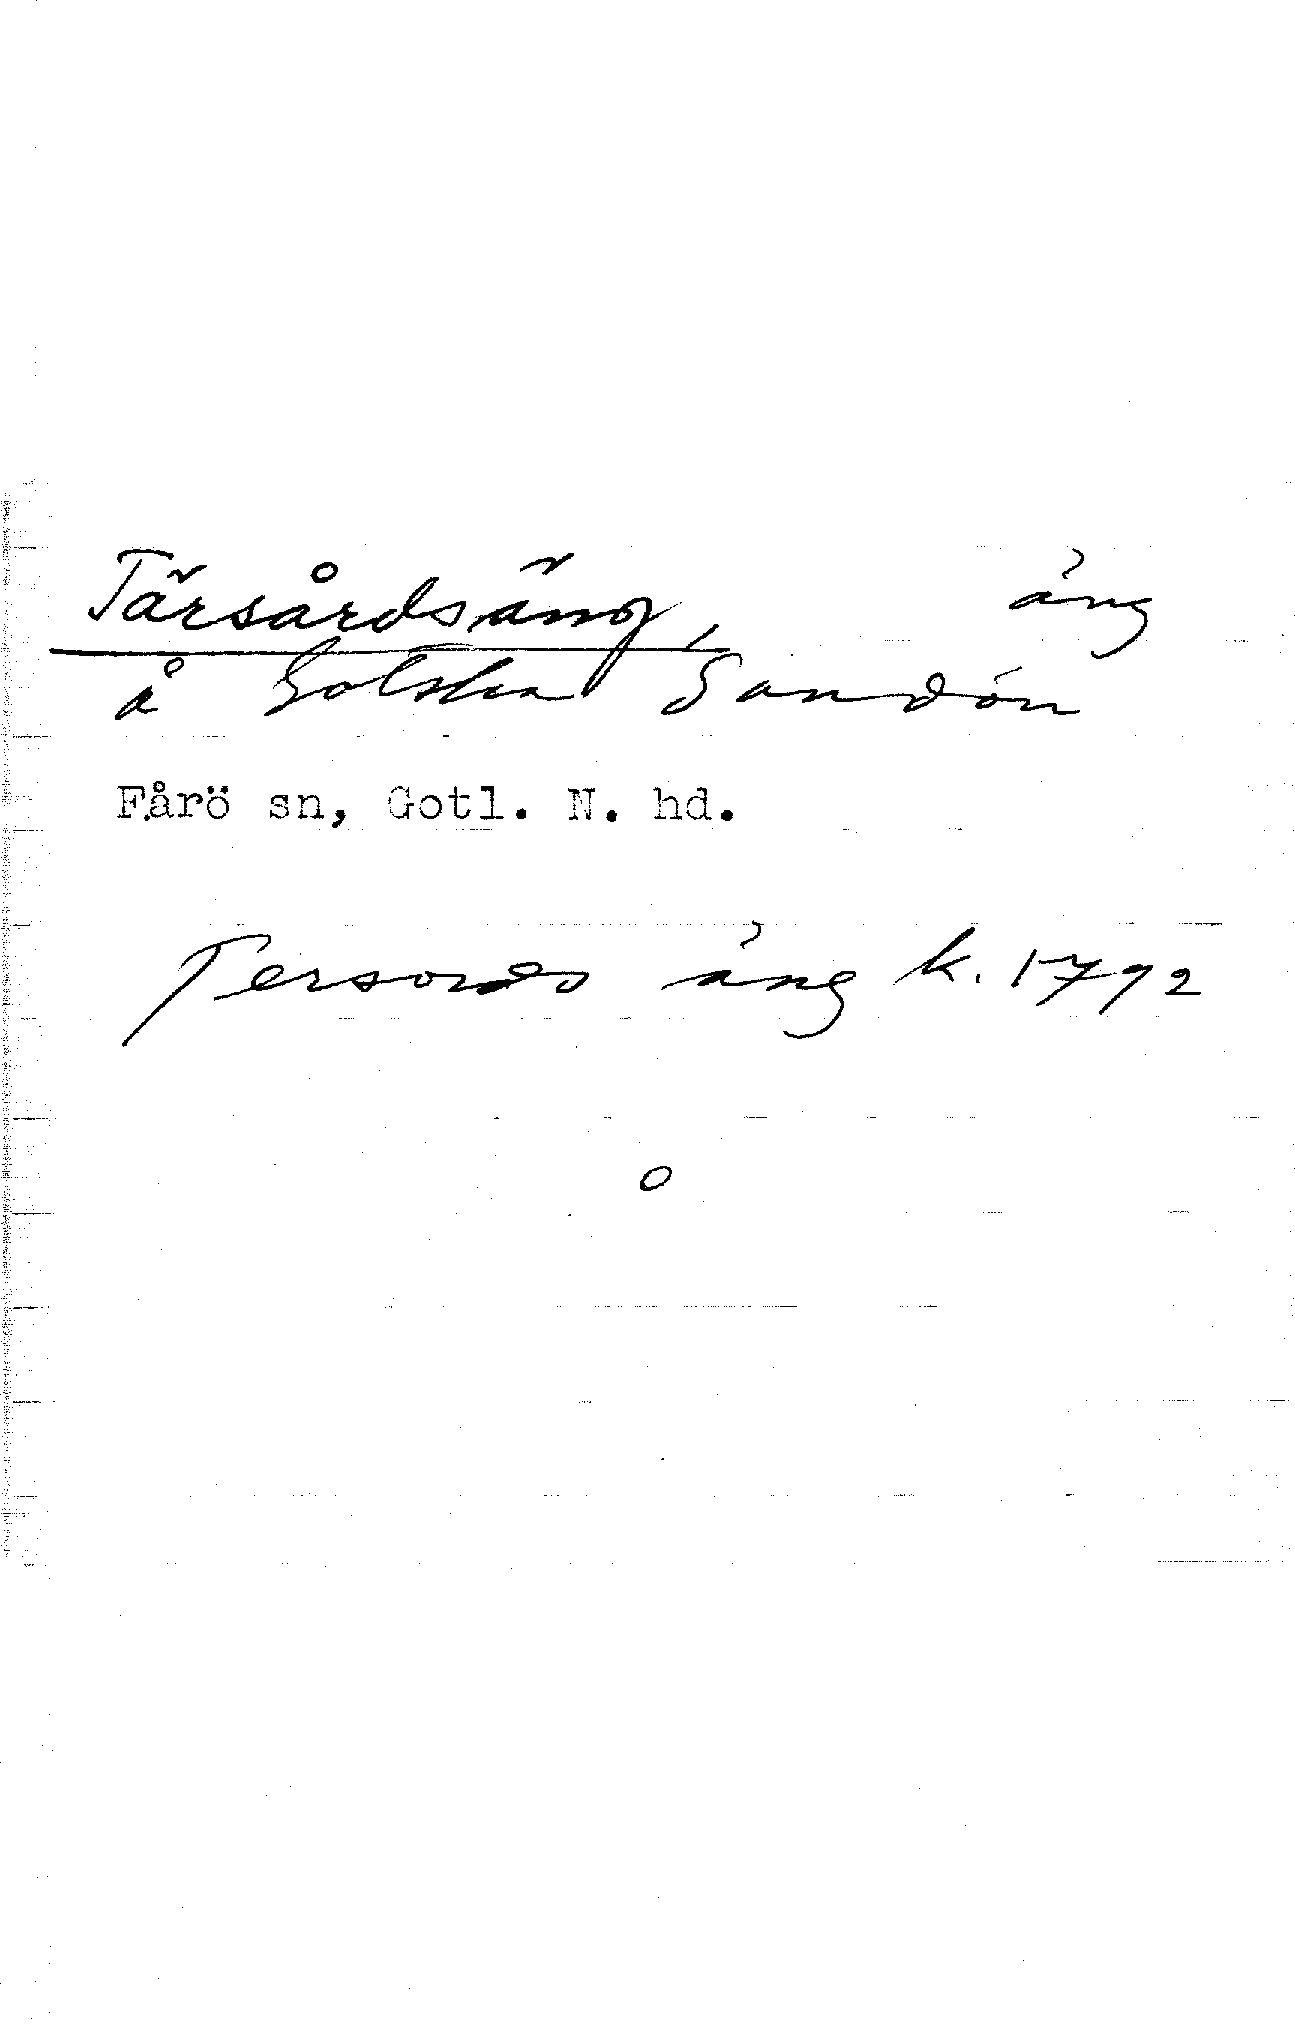 Tärsårdsäng, äng
å Gotska Sandön
Fårö sn, Gotl. N. hd.
äng k. 1792